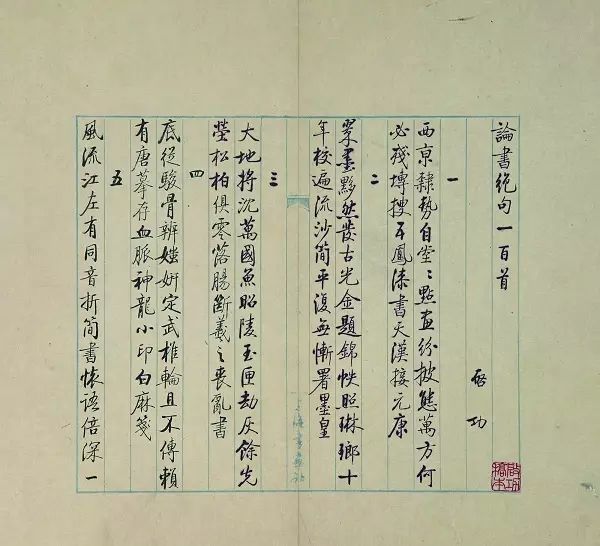 論書絕句一百首
启功
一
西京隸勢自堂〻點畫紛披態萬方何
必殘塼搜五鳳漆書天漢接元康
二
翠墨黟然發古光金題錦帙照琳瑯十
年校遍流沙簡平復無慚署墨皇
三
大地將沈萬國魚昭陵玉匣劫灰餘先
塋松柏俱零落腸斷羲之喪亂書
四
底從駿骨辨媸妍定武椎輪且不傳賴
有唐摹存血脈神龍小印白麻箋
五
風流江左有同音折簡書懷語倍深一